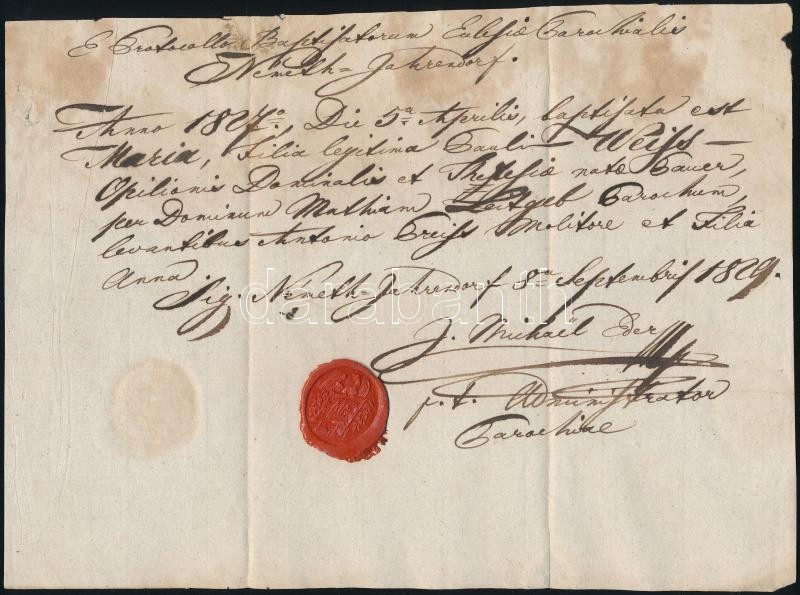 E Protocollo Baptisatorum Eclesiæ Parochialis
Nemeth=Jahrendorf.
Anno 1827º, Die 5ª Aprilis, baptisata est
Maria, Filia legitima Pauli Weiss
Opilionis Dominalis et Theresiæ natæ Pauer,
per Dominum Mathiam Leitgeb Parochum,
levantibus Antonio Preiss Molitore et Filia
Anna
Sig. Nemeth=Jahrendorf 8ª Septembris 1829.
darabanth
J. Michaël
p. t. Administrator
Parochiae